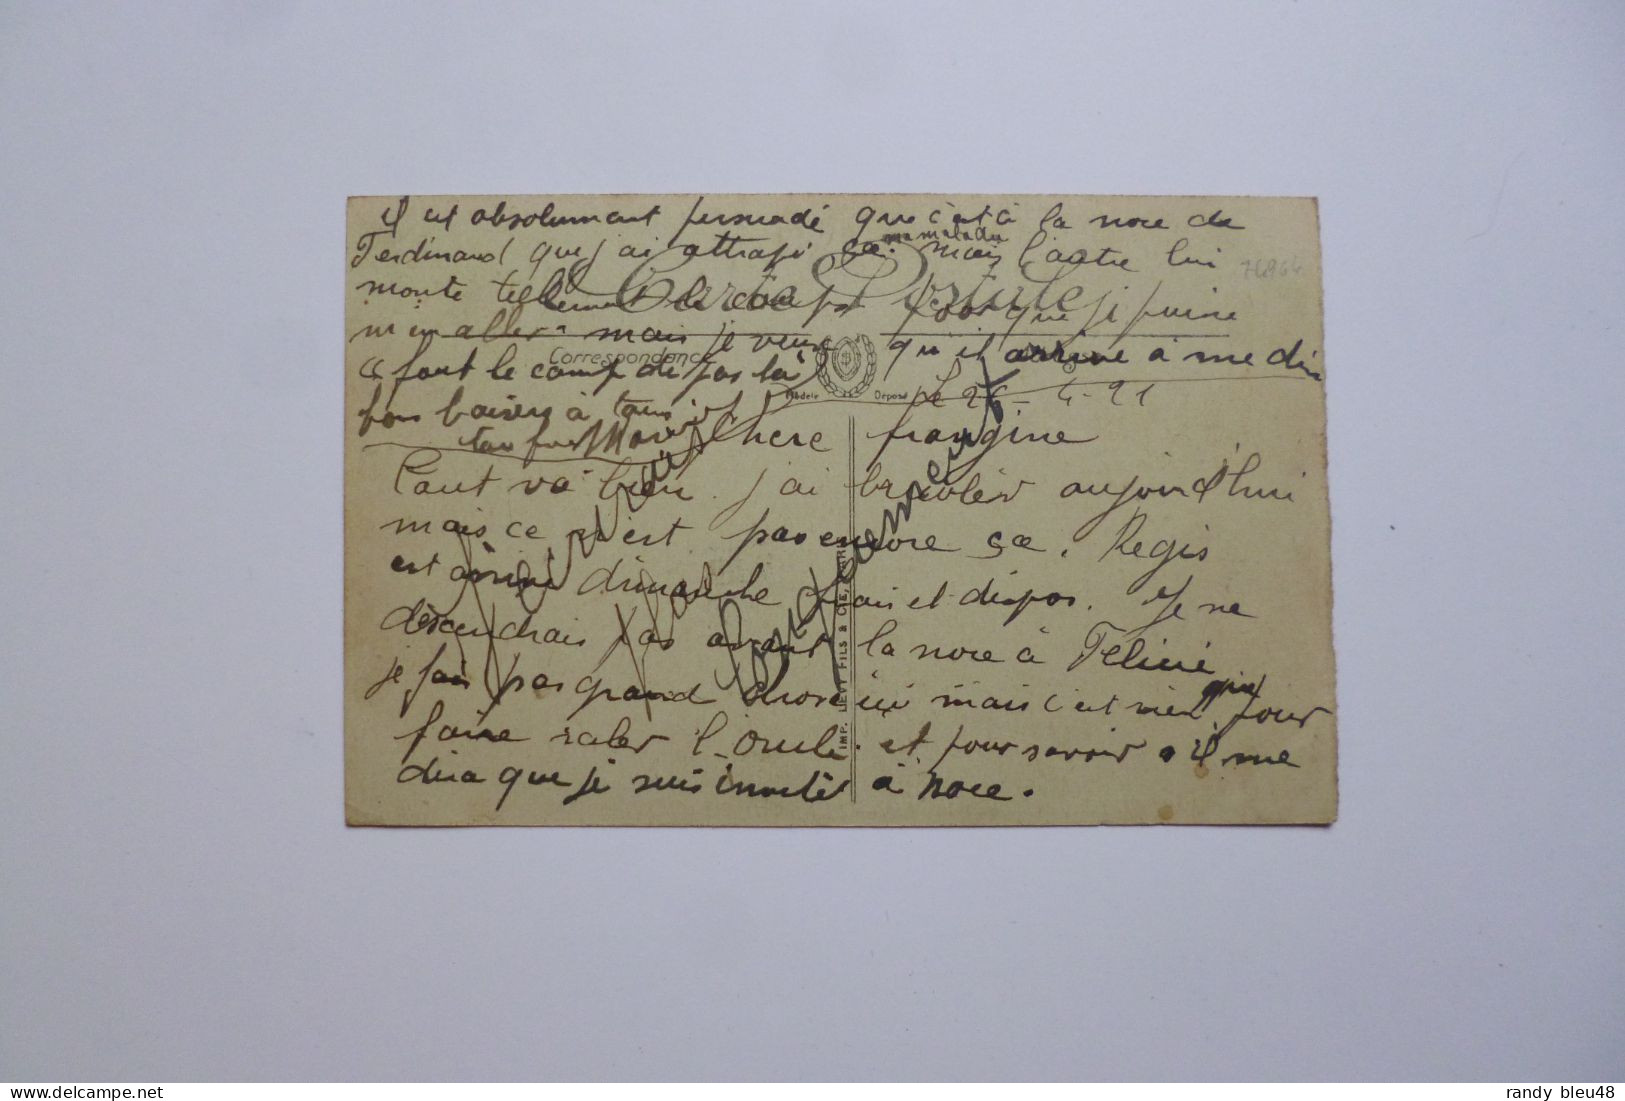 il est absolument persuadé que c'est à la noce de
Ferdinand que j'ai attrapé ça ma maladie mais l'autre lui
monte tellement le coup pour que je puise
Carte Postale
m'en aller. mais je veux qu'il arrive à me dire
Correspondance
"fout le camp de pas là"
Modèle Déposé
Le 26-4-21
bons baisers à tous
ton frère
Chere frangine
tout va bien. j'ai bricoler aujourd'hui
mais ce n'est pas encore ça. Regis
est arrivé dimanche frais et dispos. Je ne
descendrais pas avant la noce à Feline
je fais pas grand chose ici mais c'est rien que pour
faire raler l'oncle. et pour savoir s'il me
dira que je suis invité à noce.
IMP. LEVY FILS & CIE,
randy bleu48